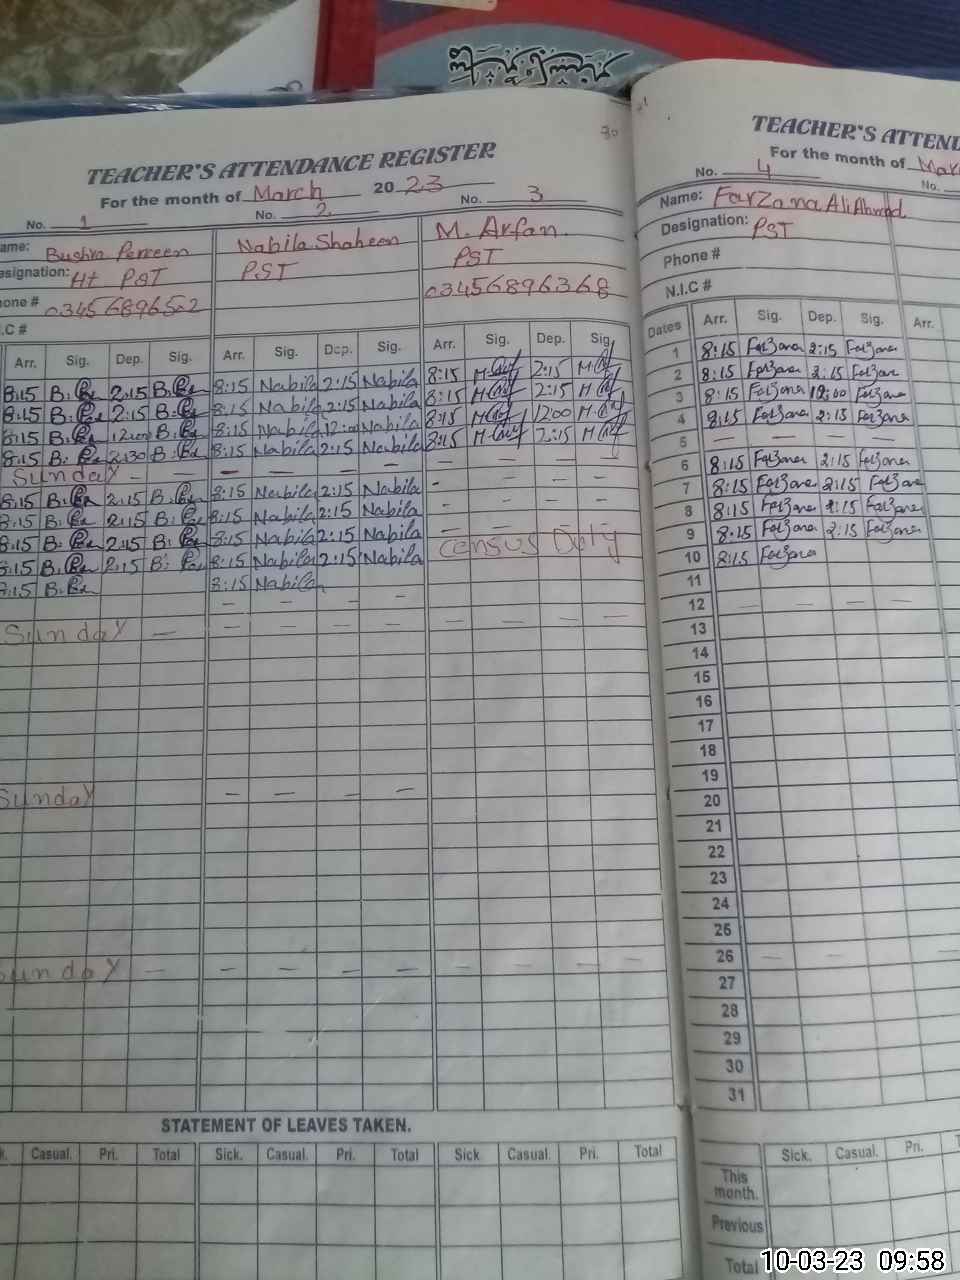 TEACHER'S ATTENDANCE REGISTER
For the month of March 2023
No. 1 No. 2 No. 3
ame: Bushra Perveen Nabila Shaheen M. Arfan
esignation: Ht PST PST PST
one # 03456896502 03456896368
.C #
Arr. Sig. Dep. Sig. Arr. Sig. Dep. Sig. Arr. Sig. Dep. Sig.
8:15 2:15 8:15 Nabila 2:15 Nabila 8:15 2:15
8:15 2:15 8:15 Nabila 2:15 Nabila 8:15 2:15
8:15 12:00 8:15 Nabila 12:00 Nabila 8:15 1200
8:15 2:30 8:15 Nabila 2:15 Nabila 8:15 2:15
Sunday - - - - - - - - -
8:15 2:15 8:15 Nabila 2:15 Nabila
8:15 2:15 8:15 Nabila 2:15 Nabila
8:15 2:15 8:15 Nabila 2:15 Nabila
8:15 2:15 8:15 Nabila 2:15 Nabila Census Duty
8:15 8:15 Nabila
Sunday - - - - - - - - -
Sunday - - - -
Sunday - - - - - - - - -
STATEMENT OF LEAVES TAKEN.
k. Casual. Pri. Total Sick. Casual. Pri. Total Sick. Casual. Pri. Total
TEACHER'S ATTEN
For the month of Mar
No. 4 No.
Name: Farzana Ali Ahmad
Designation: PST
Phone #
N.I.C #
Dates Arr. Sig. Dep. Sig. Arr.
1 8:15 Farzana 2:15 Farzana
2 8:15 Farzana 2:15 Farzana
3 8:15 Farzana 12:00 Farzana
4 8:15 Farzana 2:15 Farzana
5 - - - -
6 8:15 Farzana 2:15 Farzana
7 8:15 Farzana 2:15 Farzana
8 8:15 Farzana 2:15 Farzana
9 8:15 Farzana 2:15 Farzana
10 8:15 Farzana
11
12 - - - -
13
14
15
16
17
18
19
20
21
22
23
24
25
26 - - -
27
28
29
30
31
Sick. Casual. Pri. T
This month.
Previous
Total
10-03-23 09:58